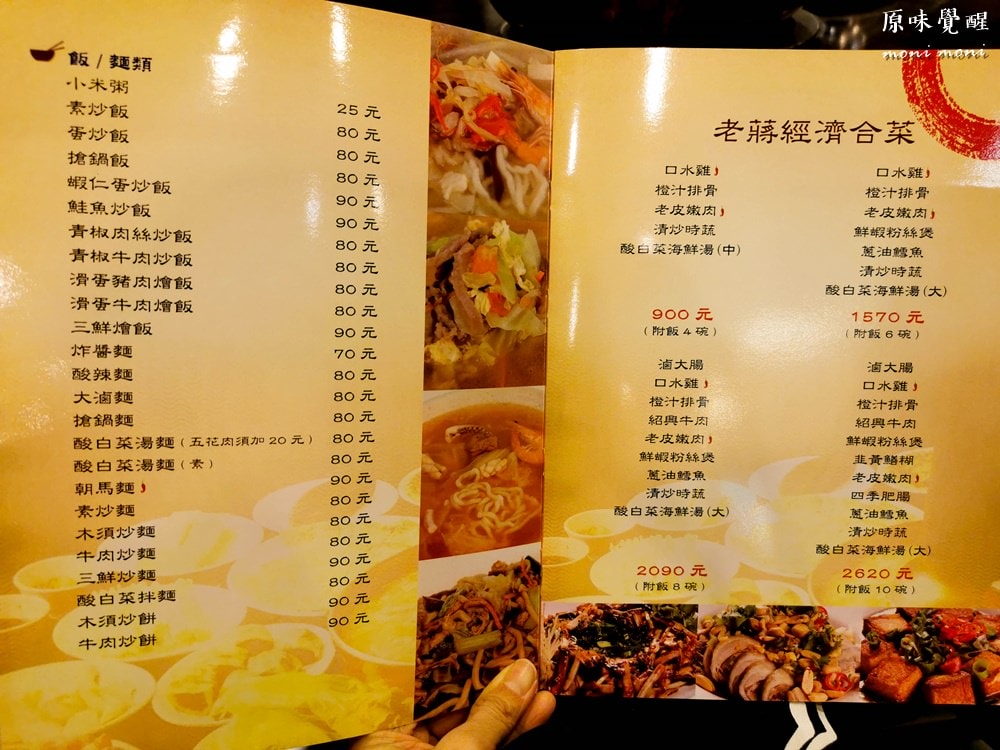 原味覺醒
moni moni
飯 / 麵類
小米粥 25 元
素炒飯 80 元
蛋炒飯 80 元
搶鍋飯 80 元
蝦仁蛋炒飯 90 元
鮭魚炒飯 90 元
青椒肉絲炒飯 80 元
青椒牛肉炒飯 80 元
滑蛋豬肉燴飯 80 元
滑蛋牛肉燴飯 80 元
三鮮燴飯 90 元
炸醬麵 70 元
酸辣麵 80 元
大滷麵 80 元
搶鍋麵 80 元
酸白菜湯麵 (五花肉須加 20 元) 80 元
酸白菜湯麵 (素) 80 元
朝馬麵 90 元
素炒麵 80 元
木須炒麵 80 元
牛肉炒麵 80 元
三鮮炒麵 90 元
酸白菜拌麵 80 元
木須炒餅 90 元
牛肉炒餅 90 元
老蔣經濟合菜
口水雞
橙汁排骨
老皮嫩肉
清炒時蔬
酸白菜海鮮湯(中)
900 元
(附飯 4 碗)
口水雞
橙汁排骨
老皮嫩肉
鮮蝦粉絲煲
蔥油鱈魚
清炒時蔬
酸白菜海鮮湯(大)
1570 元
(附飯 6 碗)
滷大腸
口水雞
橙汁排骨
紹興牛肉
老皮嫩肉
鮮蝦粉絲煲
蔥油鱈魚
清炒時蔬
酸白菜海鮮湯(大)
2090 元
(附飯 8 碗)
滷大腸
口水雞
橙汁排骨
紹興牛肉
鮮蝦粉絲煲
韭黃鱔糊
老皮嫩肉
四季肥腸
蔥油鱈魚
清炒時蔬
酸白菜海鮮湯(大)
2620 元
(附飯 10 碗)